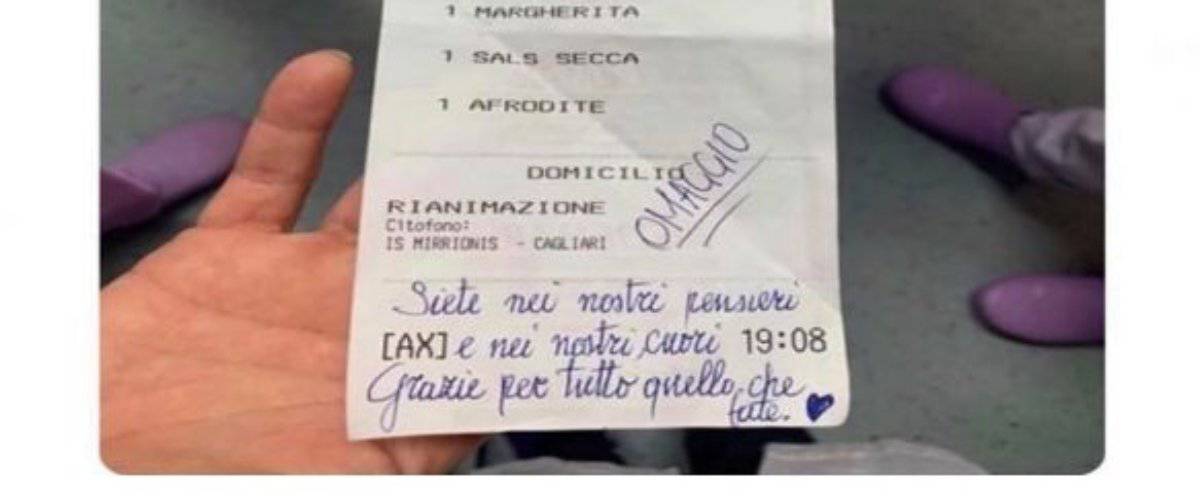 1 MARGHERITA
1 SALS SECCA
1 AFRODITE
DOMICILIO
OMAGGIO
RIANIMAZIONE
Citofono:
IS MIRRIONIS - CAGLIARI
Siete nei nostri pensieri
[AX] e nei nostri cuori 19:08
Grazie per tutto quello che
fate.